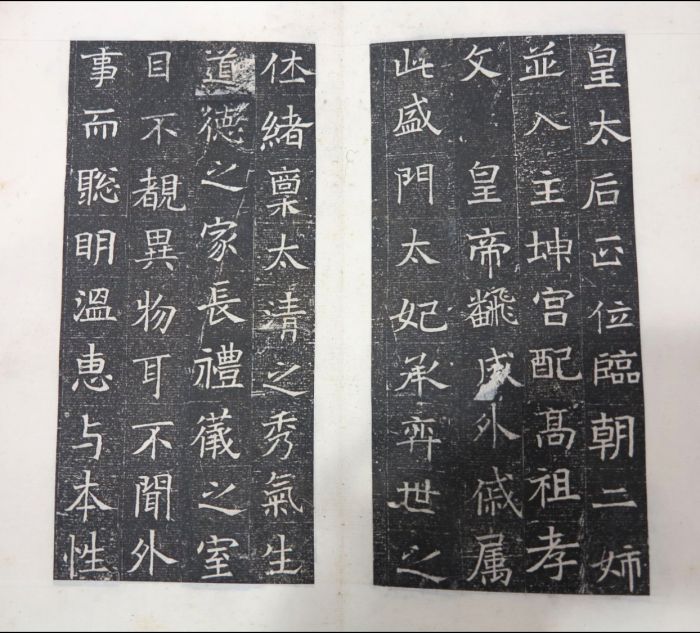 皇太后正位臨朝二姉
並入主坤宮配髙祖孝
文皇帝飜成外戚属
此盛門太妃承弈世之
休緒稟太清之秀氣生
道德之家長禮儀之室
目不覩異物耳不聞外
事而聡明溫惠与本性